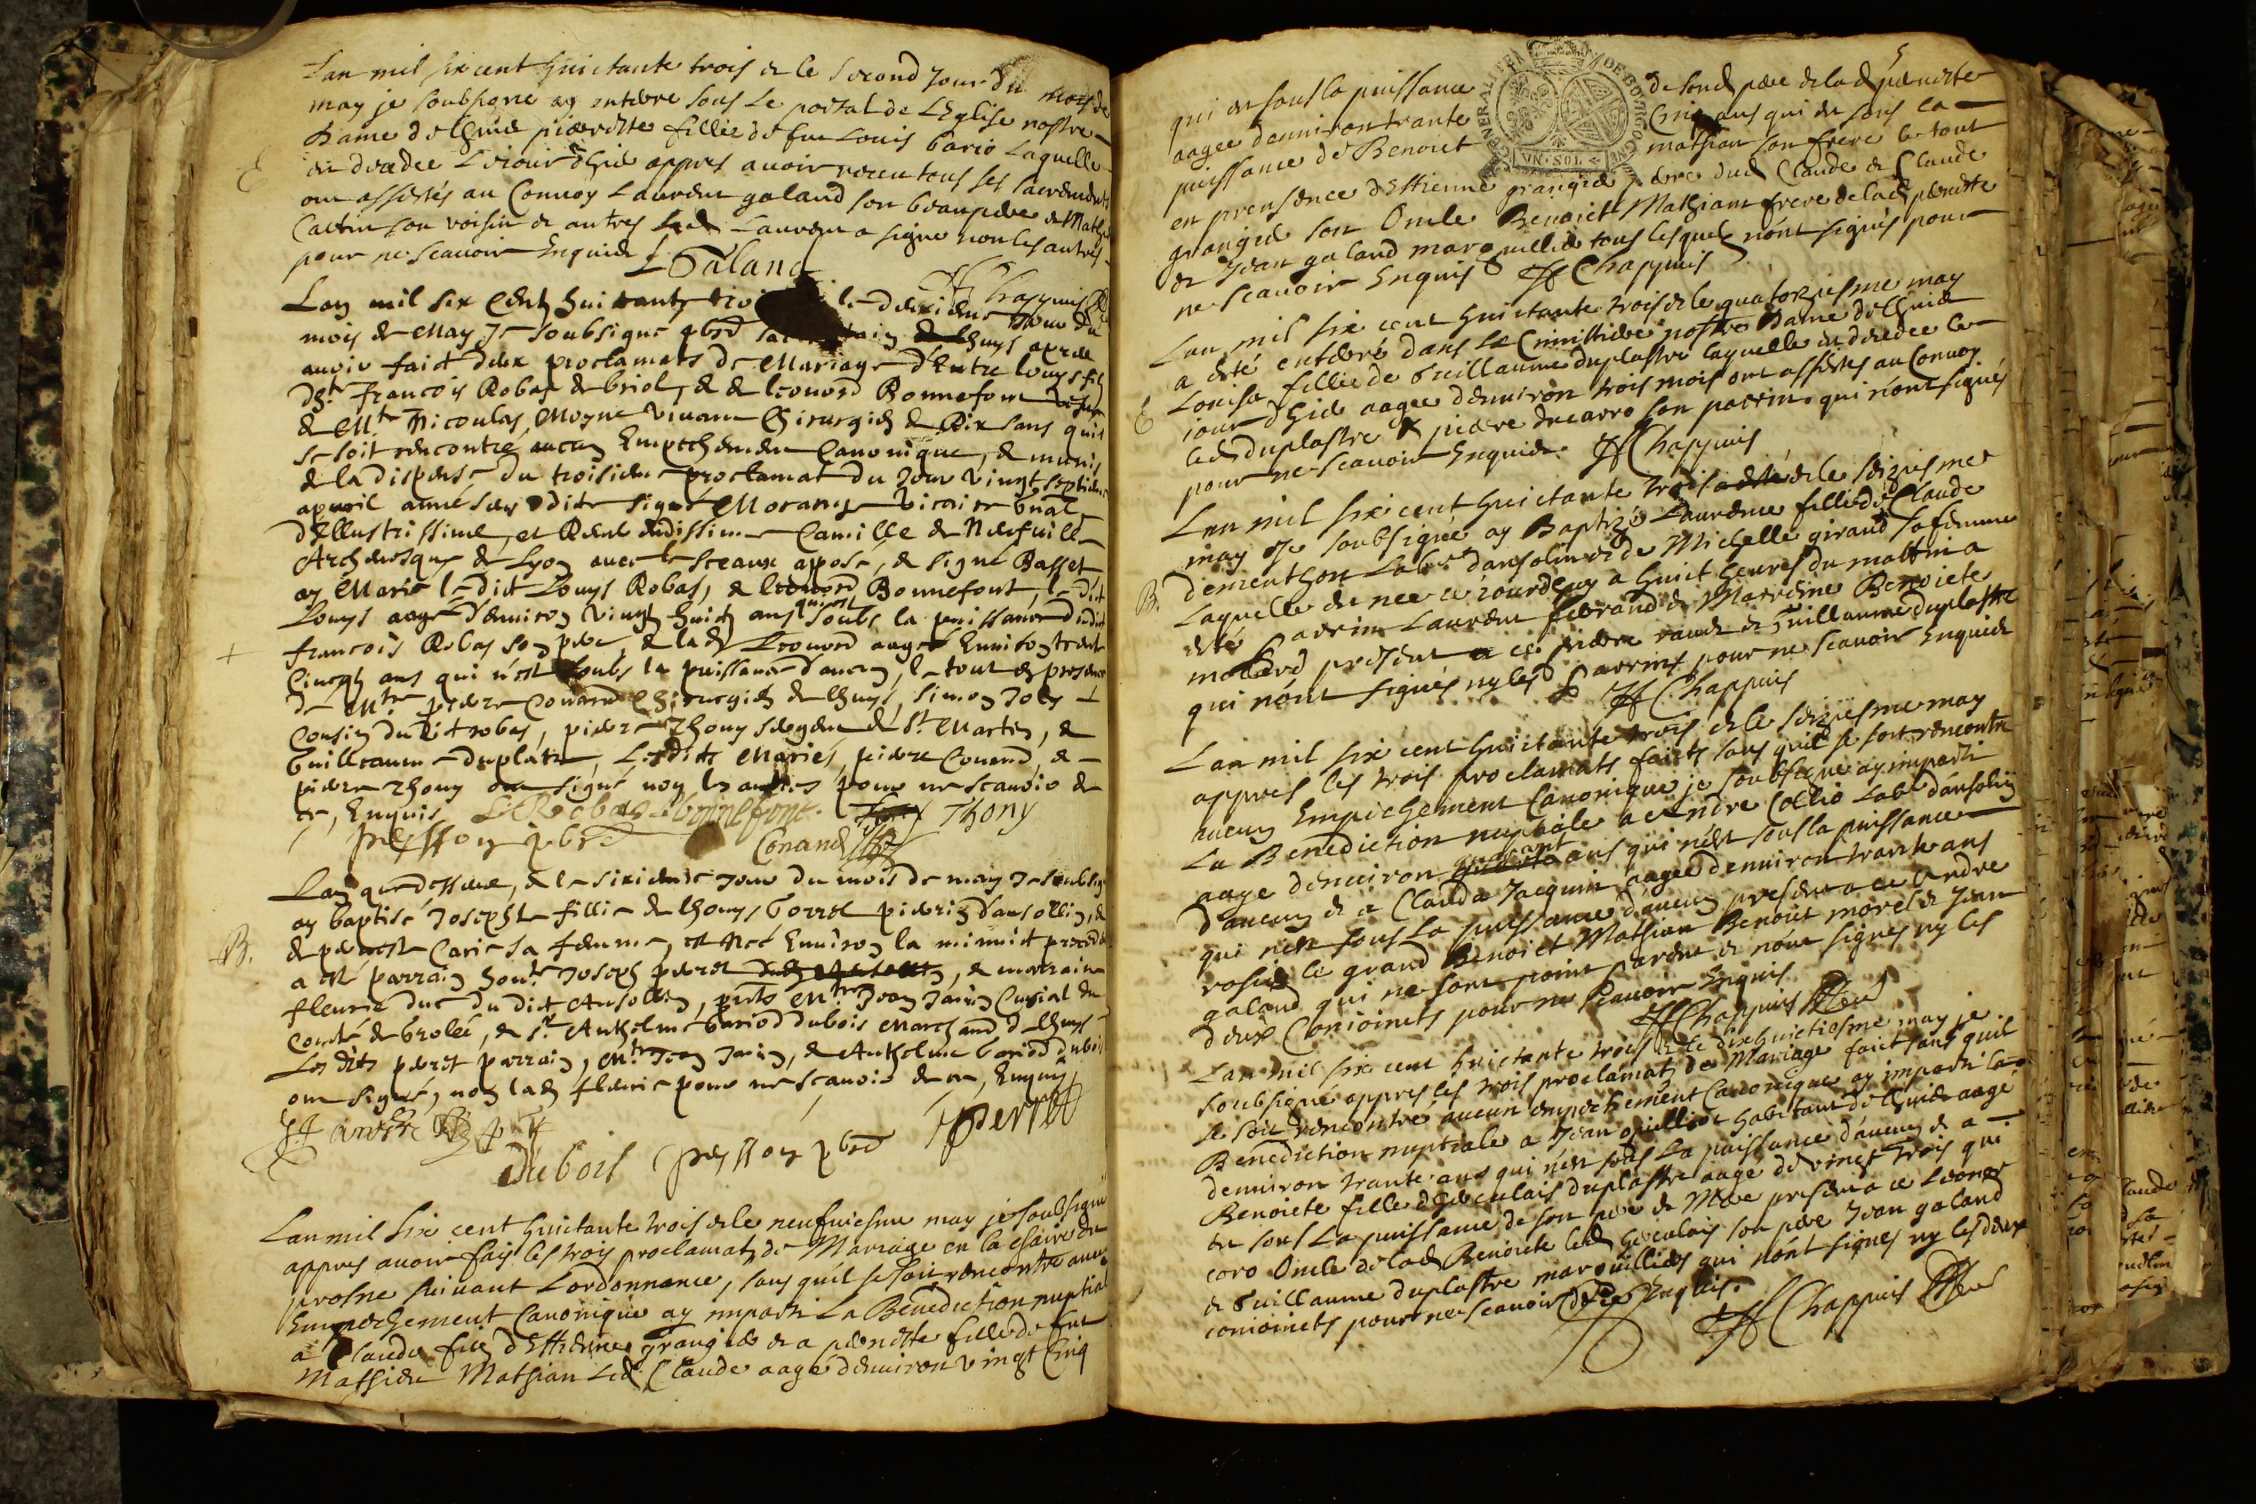 Lan mil six cent huictante trois et le second jour du mois de
may je soubsigne ay enterre sous le portail de L'Eglise nostre
Dame de lhuis pierrette fillie de feu Louis bario laquelle
est decedee appres avoir receu tous ses sacrements
ont assistés au Convoy Laurent galand son beaupere et Mathieu
son voisin et autres led Laurent a signe non les autres
pour ne scavoir Enquis L Galand
JF Chappuis
Lan mil six centz huictante trois le deuxieme jour du
mois de May Je soubsigne pbre de lhuys apres
avoir faict deux proclamats de Mariage d'Entre louys fils
de Sr francois Robas de briol, et de leonord Bonnefont vefve
de Mtre Nicoulas Moyne vivant Chirurgien de Rix sans quil
se soit rencontré aucun Empechement Canonique, et munis
de la dispense du troisieme proclamat du jour vingt septieme
apvril année susditte signé Morange vicaire gnal
d'Illustrissime, et Reverendissime Camille de Neufville
Archevesque de Lyon avec le sceaux aposé, et signé Basset
ay Marié ledict Louys Robas, et leonord Bonnefont, ledit
Louys aagé d'environ vingt huict ans quiest soubs la puissance dudit
francois Robas son pere, et lad Leonord aagée Environ trente
Cincqz ans qui n'est soubs la puissance d'aucun, le tout en presence
de Mtre pierre Conand Chirurgien de lhuys, simon Joly
cousin dudit robas, pierre Thony sergent de St Martin, et
Guilleaume duplatre, Lesdits Mariés, pierre Conand, et
pierre Thony ont signé non les autres pour ne scavoir de
ce, Enquis L Robas L bonnefont Thony
peysson pbre Conand
Lan que dessus, et le sixieme Jour du mois de may Je soubsigné
ay baptisé Josephte fillie de Thonys d'ansollin, et
de pernette Carie sa femme, et Née Environ la minuict precedente
a esté parrain honble Joseph perret, et marraine
fleurie duc dudict Ansollin, pnts Mtre Jean Janin Curial du
Comté de Grolée, et Sr Anthelme bariod dubois Marchand d lhuys
Lesdits perret parrain, Mtre Jean Janin, et Anthelme bariod dubois
ont signé, non lad fleurie pour ne scavoir de ce, Enquis
Dubois peysson pbre J perret
Lan mil six cent huictante trois et le neufviesme may je soubsigne
appres avoir fais les trois proclamats de Mariage en la chaire du
prosne suivant Lordonnance, sans qu'il se soit rencontre aucun
Empechement Canonique ay imparti La Benediction nuptiale
a Claude fils d'Estienne grangier et a pernette fille de feu
Mathieu Mathian led Claude aagé d'environ vingt Cinq
5
qui est sous la puissance de sond pere et lad pernette
aagee denviron trante Cinq ans qui est sous la
puissance de Benoict mathian son frere le tout
GENERALITE DE BOURGOGNE
VN·SOL
en presence d'Estienne grangier pere dud Claude et Claude
grangier son Oncle Benoict Mathian frere de lad pernette
et Jean galand marguillier tous lesquels nont signés pour
ne scavoir Enquis JF Chappuis
Lan mil six cent huictante trois et le quatorziesme may
a esté enterré dans le Cimistiere nostre Dame de lhuis
Louise fillie de Guillaume duplastre laquelle est decedee ce
jourdhuis aagee denviron trois mois ont assistes au Convoy
led duplastre et pierre ducarro son parrin qui nont signés
pour ne scavoir Enquis. JF Chappuis
Lan mil six cent huictante trois et le seiziesme
may Je soubsigné ay Baptizé Laurence fillie de Claude
dementhon Labr dansolin et de Michelle giraud sa femme
Laquelle est nee ce jourdhuy a huict heures du mattin a
esté Parrin Laurent ferrand et Marrine Benoicte
present a ce pierre et Guillaume duplastre
qui nont signés ny led Parrins pour ne scavoir Enquis
JF Chappuis
Lan mil six cent huictante trois et le seiziesme may
appres les trois proclamats faicts sans quil se soit rencontré
aucun Empechement Canonique je soubsigne ay imparti
La Benediction nuptiale a Andre Collio Labr dansolin
aage denviron quarant ans qui nest sous la puissance
d'aucun et a Clauda Jacquin aagee denviron trante ans
qui nest sous La puissance daucun present a ce Andre
rosier le grand Benoict Mathian Benoict morel et Jean
galand qui ne sont point parent et nont signés ny les
deux Conjoincts pour ne Scavoir Enquis
JF Chappuis
Lan mil six cent huictante trois et le dixhuictiesme may je
soubsigné appres les trois proclamats de Mariage faict sans quil
se soit rencontré aucun empechement Canonique ay imparti la
Benediction nuptiale a Jean habitant de lhuis aagé
denviron trante ans qui nest sous La puissance daucun et a
Benoicte fille duplastre aagé de vingt trois qui
est sous La puissance de son pere et Mere present a ce Leonard
caro Oncle de lad Benoicte led son pere Jean galand
et Guillaume duplastre marguilliers qui nont signes ny les deux
conjoincts pour ne Scavoir de ce Enquis.
JF Chappuis